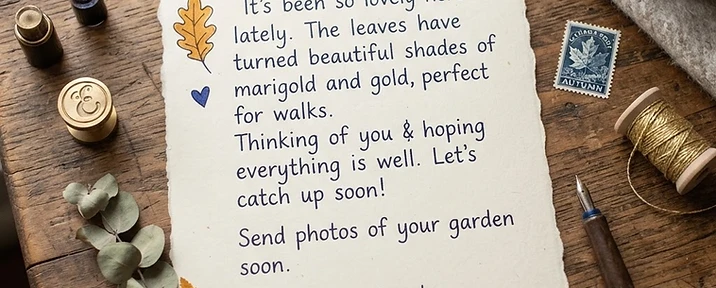 It's been so lovely
lately. The leaves have
turned beautiful shades of
marigold and gold, perfect
for walks.
Thinking of you & hoping
everything is well. Let's
catch up soon!
Send photos of your garden
soon.
E
AUTUMN